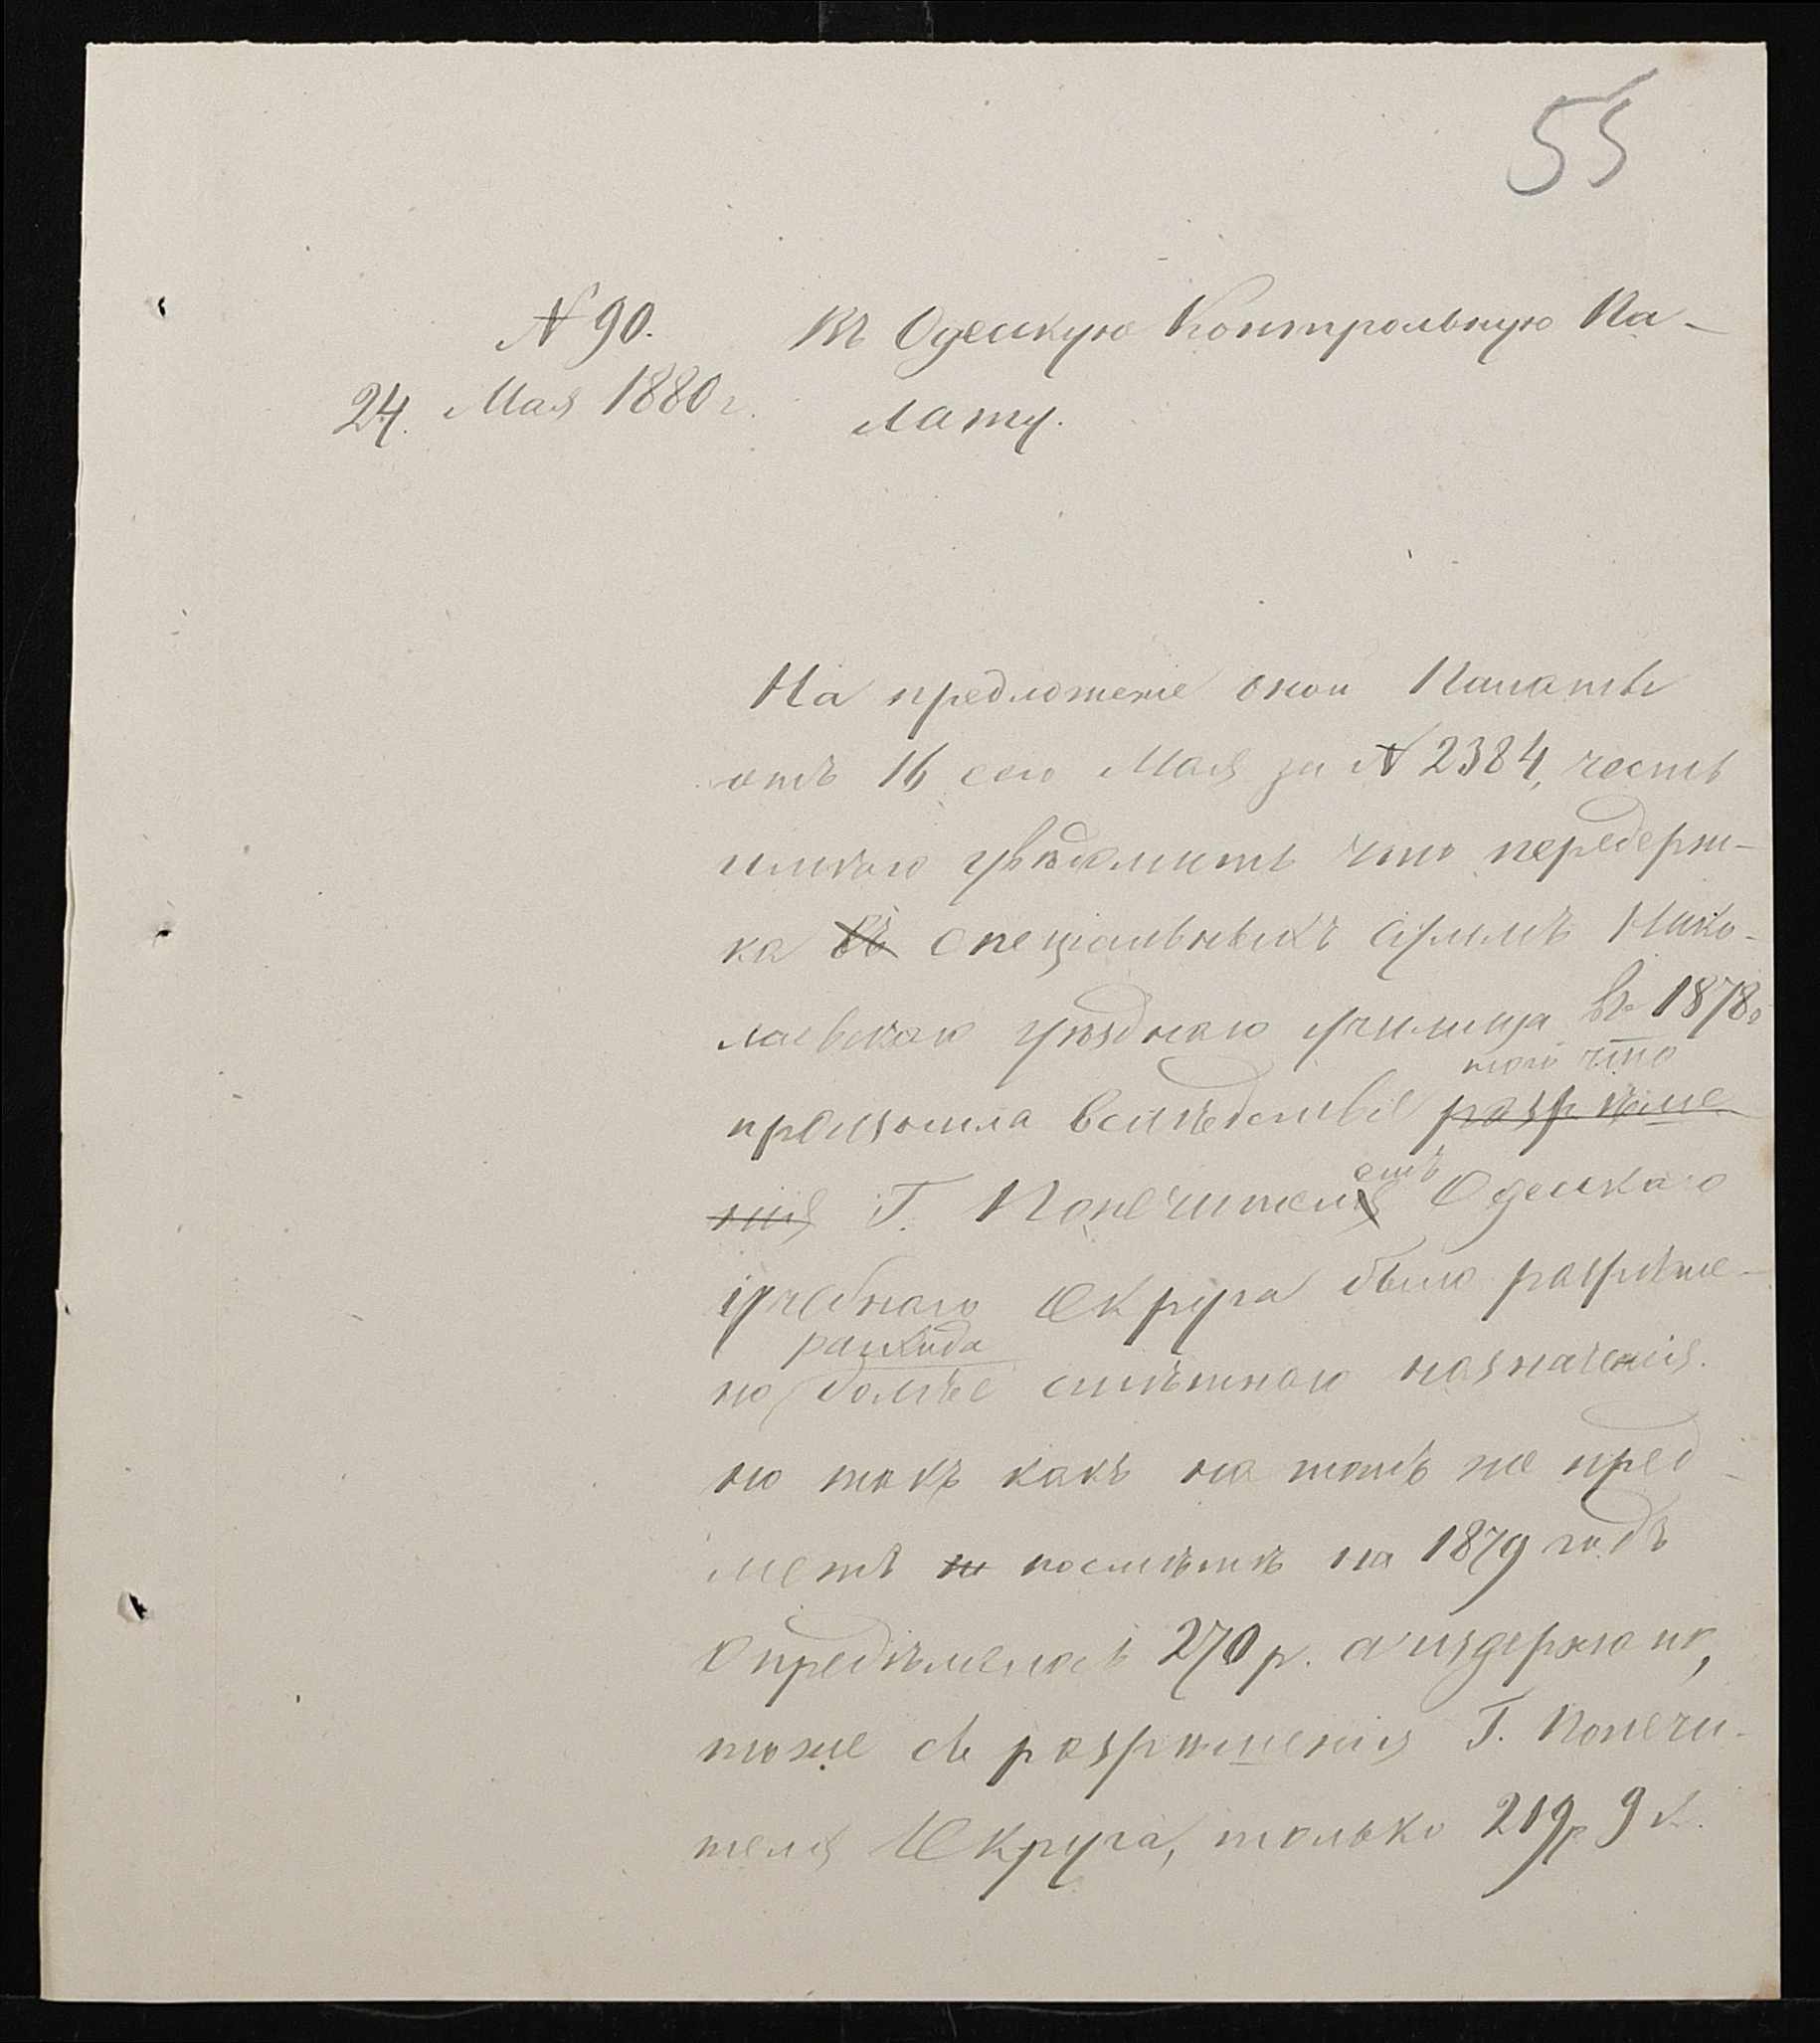 55
№ 90.
24. Мая 1880 г.
Въ Одесскую Контрольную Па-
лату.
На предложеніе оной Палаты
отъ 16 сего Мая за № 2384, честь
имѣю увѣдомить что передерж-
ка въ спеціальныхъ суммъ Нико-
лаевскаго уѣзднаго училища въ 1878 г
того что
произошла вслѣдствіе разрѣше
нія Г. Попечителя емъ Одесскаго
учебнаго Округа было разрѣше-
расхода
но болѣе смѣтнаго назначенія.
но такъ какъ на тотъ же пред-
метъ по смѣтѣ на 1879 годъ
опредѣлено 270 р. а издержано,
тоже съ разрѣшенія Г. Попечи-
теля Округа, только 219 р 9 к.